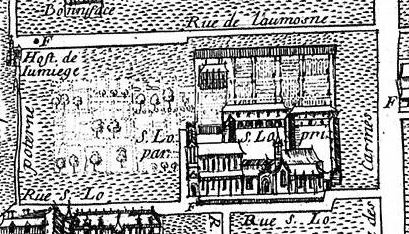 Bonniface
Rue de l'aumosne
F
Host. de
Iumiege
poterne
s. Lo
par.
s. Lo
pri.
F
Carmes
Rue s. Lo
F
Rue s. Lo
R
des